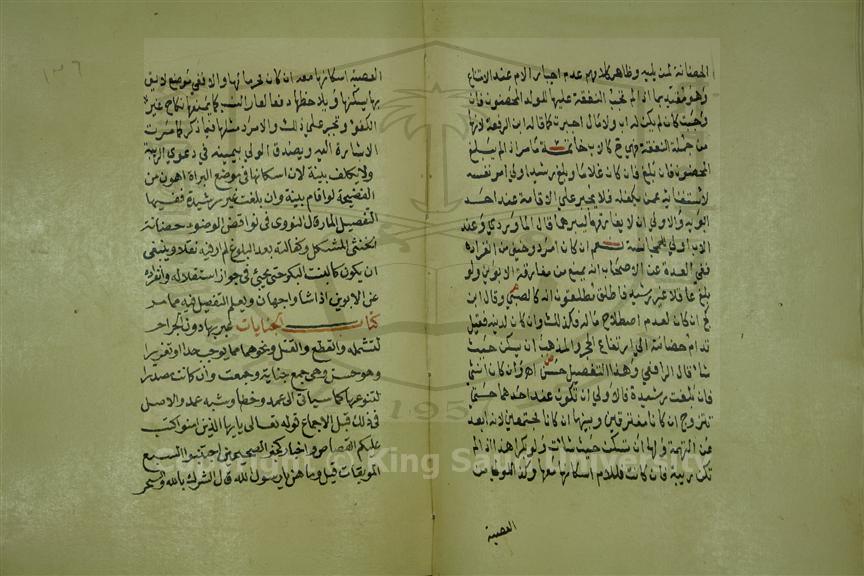 الحضانة لمن يليه وظاهر كلامهم عدم اجبار الام عند الامتناع
وهو مقيد بما اذا لم تجب النفقة عليها للولد المحضون فان
وجبت كان لم يكن له اب ولا مال اجبرت كما قاله ابن الرفعة لانها
من جملة النفقة فهي كالاب خاتمة ما مر اذا لم يبلغ
المحضون فان بلغ فان كان غلاما وبلغ رشيدا ولي امر نفسه
لاستغنائه عمن يكفله فلا يجبر على الاقامة عند احد
ابويه والاولى ان لا يفارقهما ليبرهما قال الماوردي وعند
الاب اولى للمجانسة نعم ان كان امرد وخيف من انفراده
ففي العدة عن الاصحاب انه يمنع من مفارقة الابوين ولو
بلغ عاقلا غير رشيد فاطلق مطلقون انه كالصبي وقال ابن
كج ان كان لعدم اصلاح ماله فكذلك وان كان لدينه فقيل
تدام حضانته الى ارتفاع الحجر والمذهب ان يسكن حيث
شاء قال الرافعي وهذا التفصيل حسن اهـ وان كان انثى
فان بلغت رشيدة فالاولى ان تكون عند احدهما حتى
تتزوج ان كانا مفترقين وبينهما ان كانا مجتمعين لانه ابعد
عن التهمة ولها ان تسكن حيث شاءت ولو بكرا هذا اذا لم
تكن ريبة فان كانت فللام اسكانها معها وكذا للولي من
العصبة
العصبة اسكانها معه ان كان محرما لها والا ففي موضع لايق
بها يسكنها ويلاحظها دفعا لعار النسب كما يمنعها نكاح غير
الكفو وتجبر على ذلك والامرد مثلها فيما ذكر كما مرت
الاشارة اليه ويصدق الولي بيمينه في دعوى الريبة
ولا يكلف بينة لان اسكانها في موضع البراة اهون من
الفضيحة لو اقام بينة وان بلغت غير رشيدة ففيها
التفصيل المار قال النووي في نواقض الوضوء حضانة
الخنثى المشكل وكفالته بعد البلوغ لم ار فيه نقلا وينبغي
ان يكون كالبنت البكر حتى يجئ في جواز استقلاله وانفراده
عن الابوين اذا شا وجهان ويعلم التفصيل فيه مما مر
كتاب الجنايات عبر بها دون الجراح
لتشمله والقطع والقتل ونحوهما مما يوجب حدا او تعزيرا
وهو حسن وهي جمع جناية وجمعت وان كانت مصدرا
لتنوعها كما سياتي الى عمد وخطا وشبه عمد والاصل
في ذلك قبل الاجماع قوله تعالى يايها الذين امنوا كتب
عليكم القصاص واخبار كخبر الصحيحين اجتنبوا السبع
الموبقات قيل وما هن يا رسول الله قال الشرك بالله والسحر
١٣٦
Copyright © King Saud University
1957